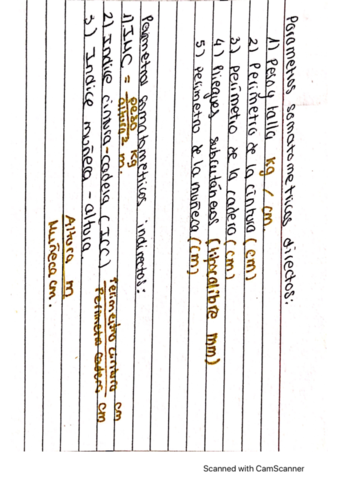 Parametros somatometricos directos:
1) Peso y talla kg / cm.
2) Perimetro de la cintura (cm)
3) Perimetro de la cadera (cm)
4) Pliegues subcutáneos (lipocalibre mm)
5) Perimetro de la muñeca (cm)
Parametros somatométricos indirectos:
1. IMC = peso kg
altura² m.
2) Indice cintura-cadera (ICC) Perimetro cintura cm
Perimetro cadera cm
3) Indice muñeca - altura
Altura m
Muñeca cm.
Scanned with CamScanner